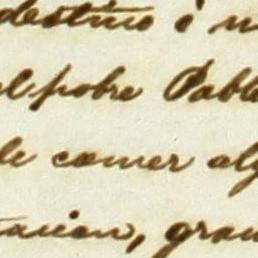 destino é
el pobre Pablo
de comer alg
tacion, gran